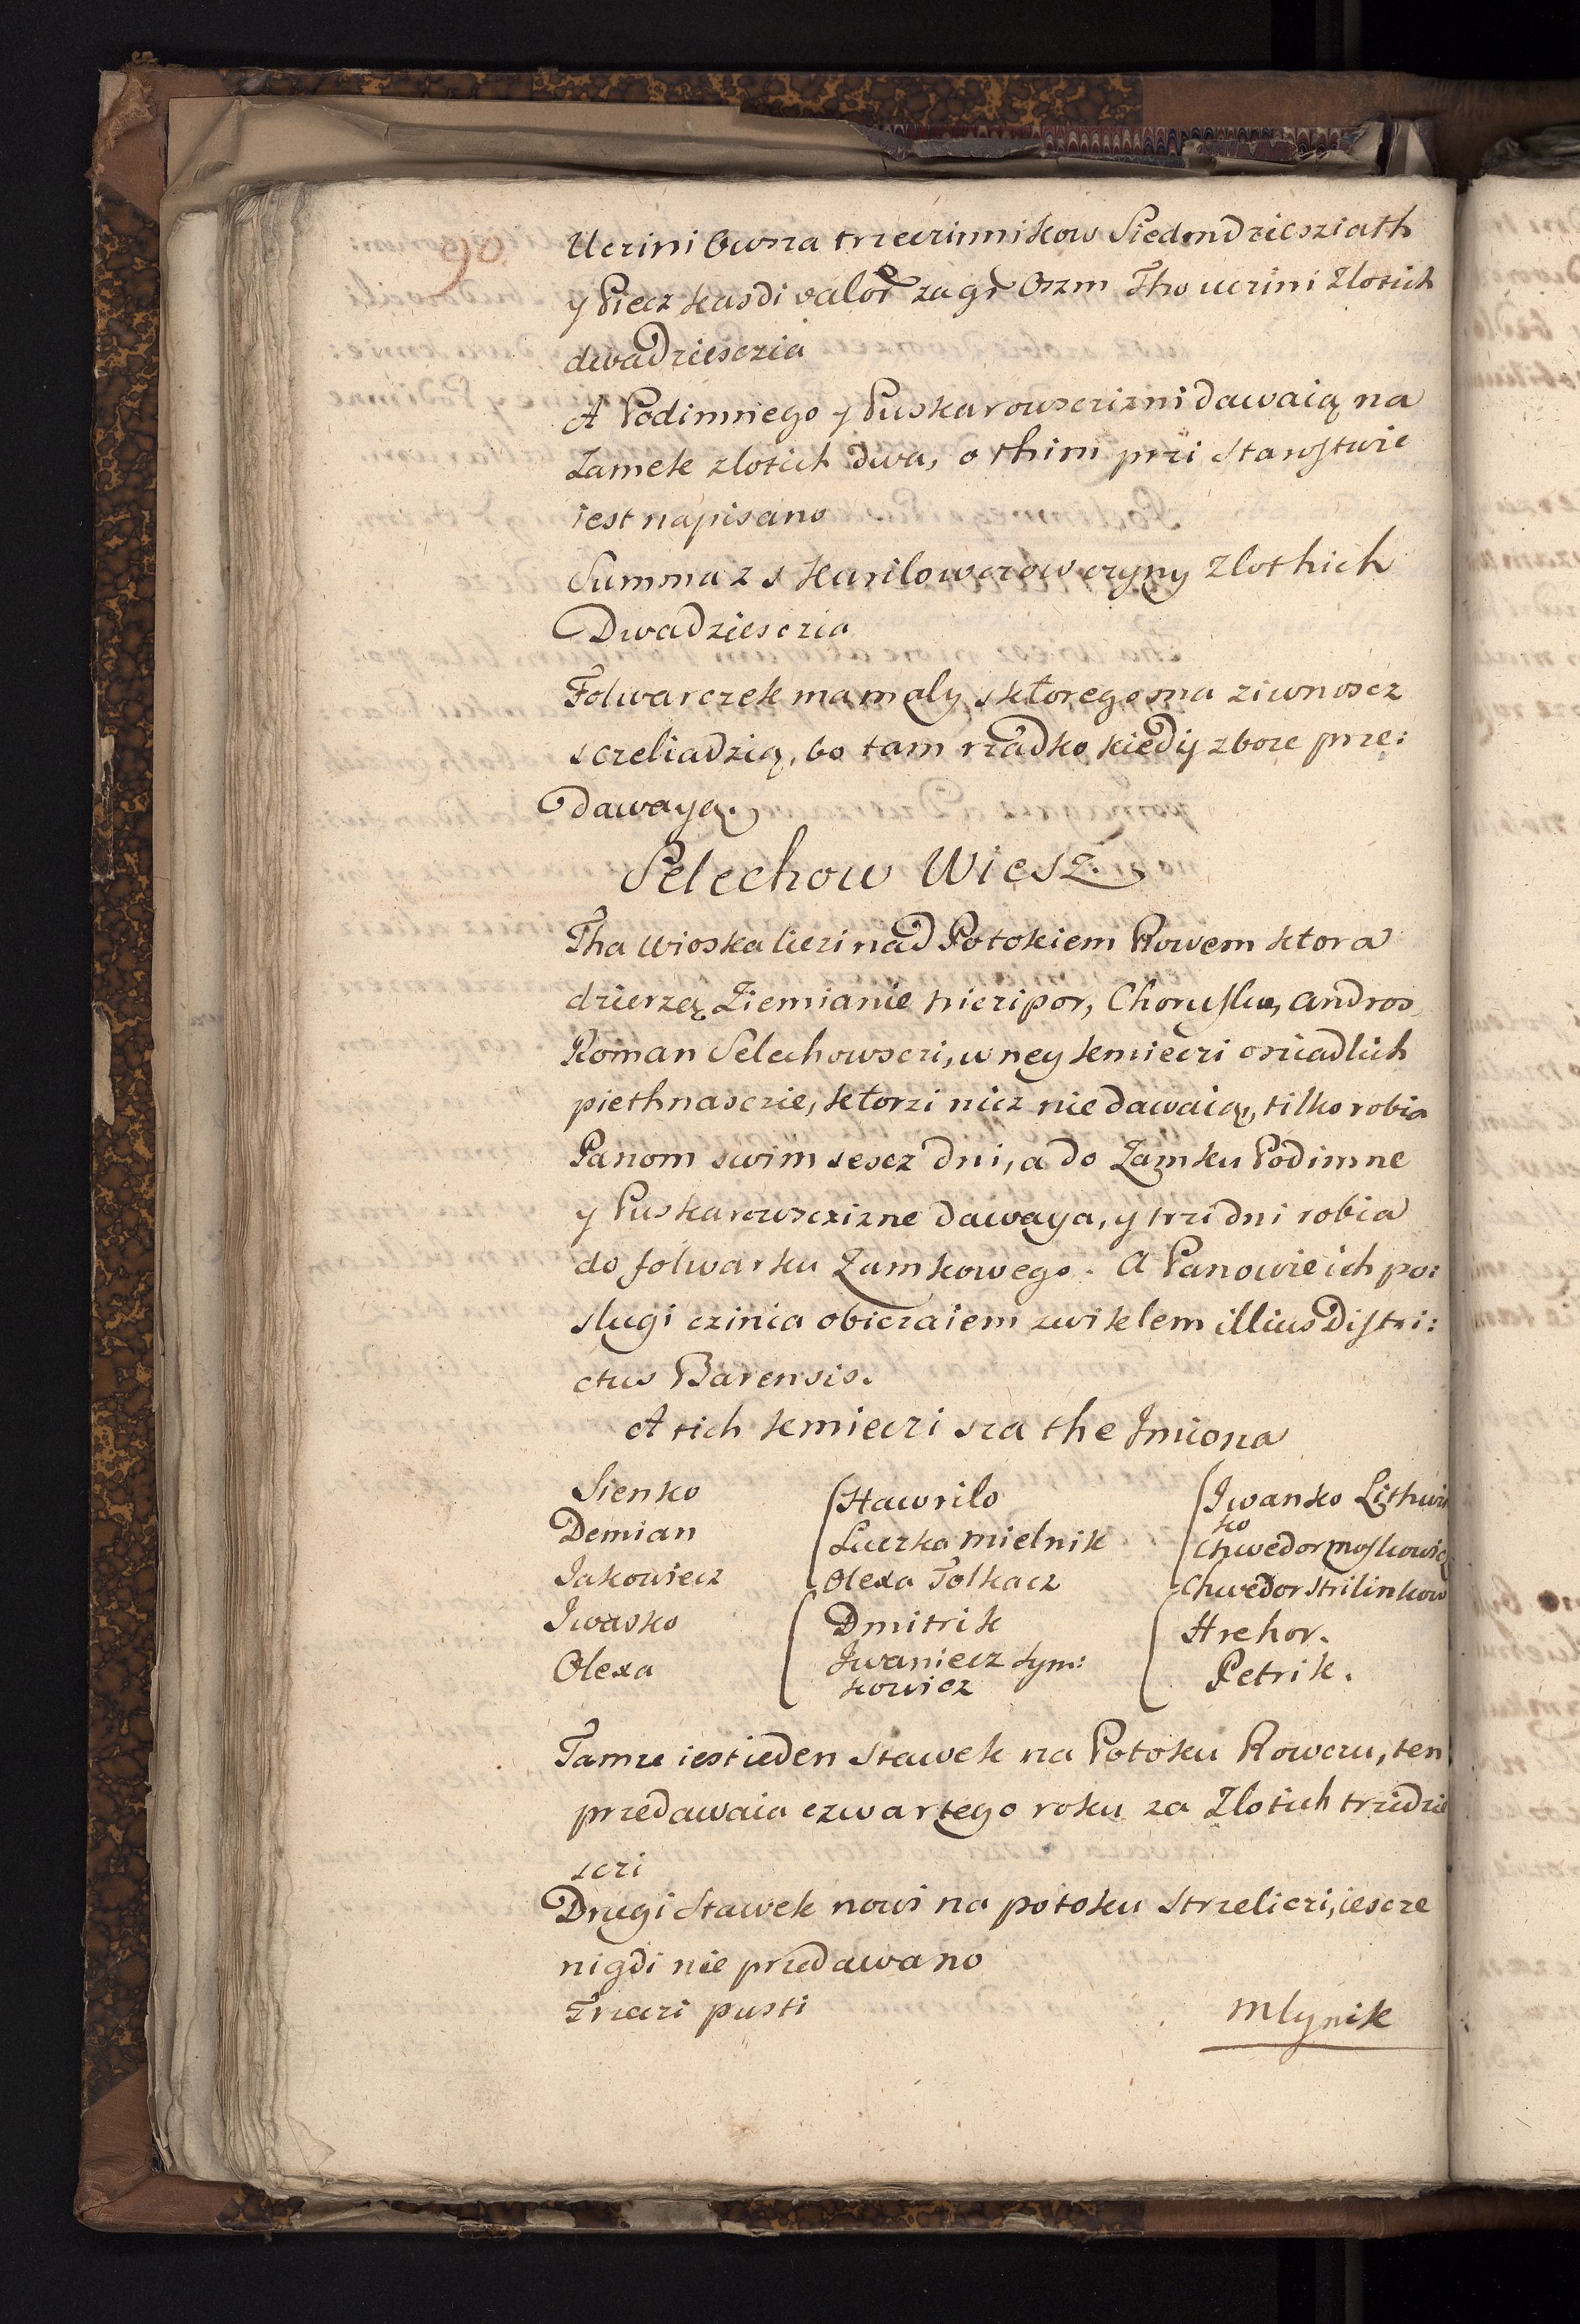 90.
Uczini Owsza trzeczinnikow Siedmdziesziath
y Piecz kasdi valor za gr Oszm Tho uczini Zlotich
dwadziesczia
A Podimnego y Puskarowsczizni dawaią na
Zamek zlotich dwa, o thim przi Starostwie
iest napisano
Summa z s Karilowczow czyny Zlothich
Dwadziesczia
Folwarczek ma maly s ktorego ma ziwnoscz
s czeliadzią, bo tam rzadko kiedy zboze prze:
dawayą.
Selechow Wiesz.
Tha wioska liezi nad Potokiem Rowem ktora
dzierzą Ziemianie Niczipor, Chorusko, Andros
Roman Selechowsczi, w ney kmieczi osziadlich
piethnasczie, ktorzi nicz nie dawaią, tilko robia
Panom swim sescz dni, a do Zamku Podimne
y Puskarowsczizne dawaya, y trzi dni robia
do folwarku Zamkowego. A Panowie ich po:
slugi czinia obiczaiem zwiklem illius Distri:
ctus Barensis.
A tich kmieczi sza the Imiona
Sienko Hawrilo Iwanko Lithwin
ko
Demian Luczka mielnik Chwedor moskowicz
Jakowiecz Olexa Tolkacz Chwedor Strilinkow
Iwasko Dmitrik Hrehor.
Olexa Iwaniecz Sym: Petrik.
kowicz
Tamze iest ieden Stawek na Potoku Rowczu, ten
przedawaia czwartego roku za Zlotich trzidzie
sczi
Drugi Stawek nowi na potoku Strzeliczi, iescze
nigdi nie przedawano
Trzeczi pusti
Mlynik